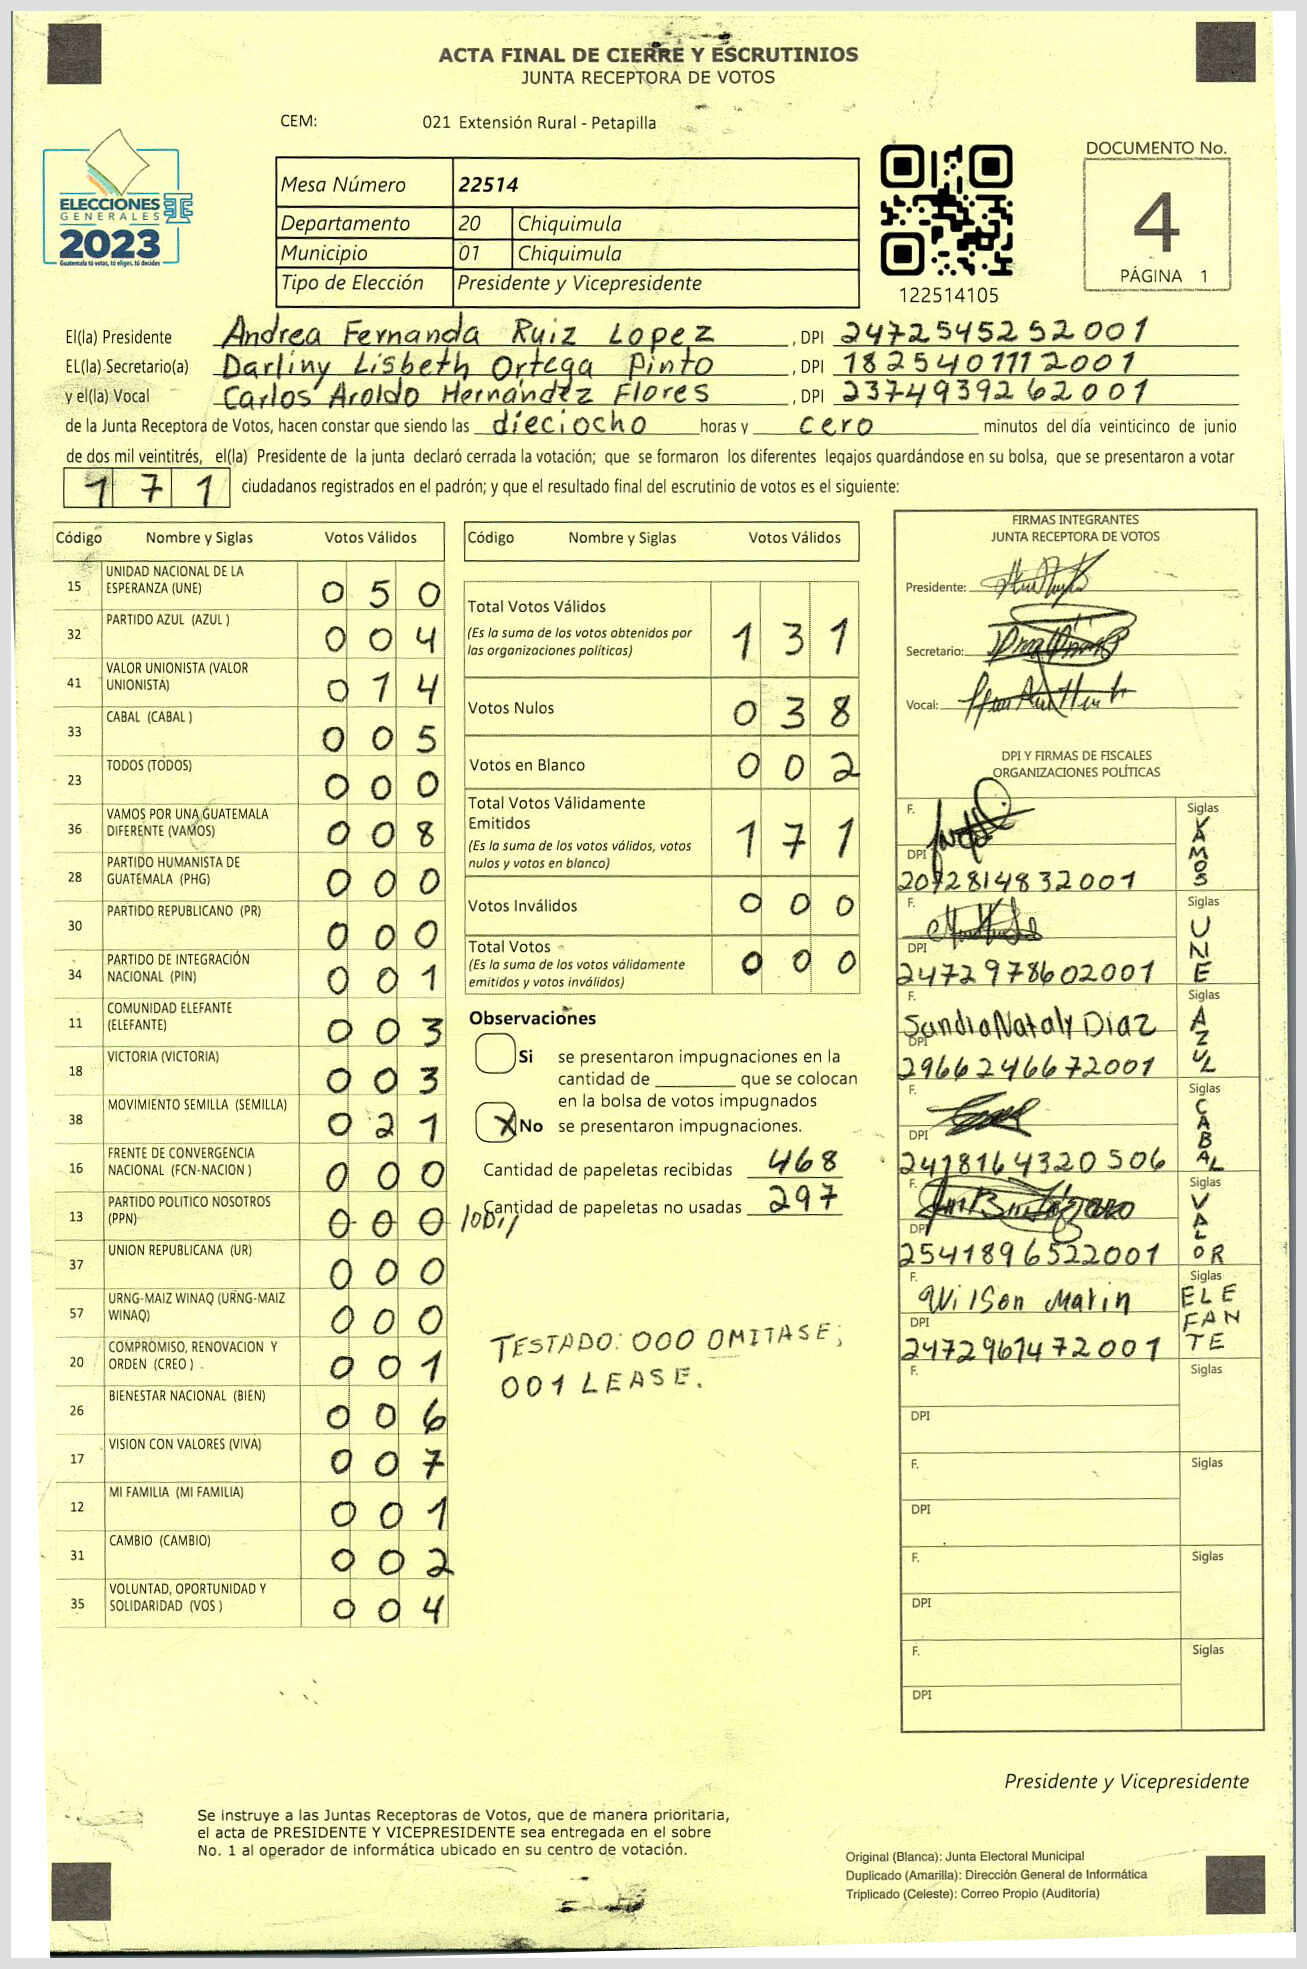 ACTA FINAL DE CIERRE Y ESCRUTINIOS
JUNTA RECEPTORA DE VOTOS
CEM: 021 Extensión Rural - Petapilla
ELECCIONES
GENERALES
2023
Guatemala tú votas, tú eliges, tú decides
Mesa Número 22514
Departamento 20 Chiquimula
Municipio 01 Chiquimula
Tipo de Elección Presidente y Vicepresidente
122514105
DOCUMENTO No.
4
PÁGINA 1
El(la) Presidente Andrea Fernanda Ruiz Lopez, DPI 2472545252001
EL(la) Secretario(a) Darliny Lisbeth Ortega Pinto, DPI 1825401112001
y el(la) Vocal Carlos Aroldo Hernández Flores, DPI 2374939262001
de la Junta Receptora de Votos, hacen constar que siendo las dieciocho horas y cero minutos del día veinticinco de junio
de dos mil veintitrés, el(la) Presidente de la junta declaró cerrada la votación; que se formaron los diferentes legajos guardándose en su bolsa, que se presentaron a votar
171 ciudadanos registrados en el padrón; y que el resultado final del escrutinio de votos es el siguiente:
Código Nombre y Siglas Votos Válidos
15 UNIDAD NACIONAL DE LA ESPERANZA (UNE) 050
32 PARTIDO AZUL (AZUL ) 004
41 VALOR UNIONISTA (VALOR UNIONISTA) 014
33 CABAL (CABAL ) 005
23 TODOS (TODOS) 000
36 VAMOS POR UNA GUATEMALA DIFERENTE (VAMOS) 008
28 PARTIDO HUMANISTA DE GUATEMALA (PHG) 000
30 PARTIDO REPUBLICANO (PR) 000
34 PARTIDO DE INTEGRACIÓN NACIONAL (PIN) 001
11 COMUNIDAD ELEFANTE (ELEFANTE) 003
18 VICTORIA (VICTORIA) 003
38 MOVIMIENTO SEMILLA (SEMILLA) 021
16 FRENTE DE CONVERGENCIA NACIONAL (FCN-NACION ) 000
13 PARTIDO POLITICO NOSOTROS (PPN) 000 /001/
37 UNION REPUBLICANA (UR) 000
57 URNG-MAIZ WINAQ (URNG-MAIZ WINAQ) 000
20 COMPROMISO, RENOVACION Y ORDEN (CREO ) 001
26 BIENESTAR NACIONAL (BIEN) 006
17 VISION CON VALORES (VIVA) 007
12 MI FAMILIA (MI FAMILIA) 001
31 CAMBIO (CAMBIO) 002
35 VOLUNTAD, OPORTUNIDAD Y SOLIDARIDAD (VOS ) 004
Código Nombre y Siglas Votos Válidos
Total Votos Válidos 131
(Es la suma de los votos obtenidos por
las organizaciones políticas)
Votos Nulos 038
Votos en Blanco 002
Total Votos Válidamente
Emitidos 171
(Es la suma de los votos válidos, votos
nulos y votos en blanco)
Votos Inválidos 000
Total Votos 000
(Es la suma de los votos válidamente
emitidos y votos inválidos)
Observaciones
Si se presentaron impugnaciones en la
cantidad de ________ que se colocan
en la bolsa de votos impugnados
X No se presentaron impugnaciones.
Cantidad de papeletas recibidas 468
Cantidad de papeletas no usadas 297
TESTADO: 000 OMITASE;
001 LEASE.
FIRMAS INTEGRANTES
JUNTA RECEPTORA DE VOTOS
Presidente:
Secretario:
Vocal:
DPI Y FIRMAS DE FISCALES
ORGANIZACIONES POLÍTICAS
F. Siglas VAMOS
DPI 2072814832001
F. Siglas UNE
DPI 2472978602001
F. Sandra Nataly Diaz Siglas AZUL
DPI 2966246672001
F. Siglas CABAL
DPI 2418164320506
F. Siglas VALOR
DPI 2541896522001
F. Wilson Marin Siglas ELEFANTE
DPI 2472961472001
F. Siglas
DPI
F. Siglas
DPI
F. Siglas
DPI
F. Siglas
DPI
Presidente y Vicepresidente
Se instruye a las Juntas Receptoras de Votos, que de manera prioritaria,
el acta de PRESIDENTE Y VICEPRESIDENTE sea entregada en el sobre
No. 1 al operador de informática ubicado en su centro de votación.
Original (Blanca): Junta Electoral Municipal
Duplicado (Amarilla): Dirección General de Informática
Triplicado (Celeste): Correo Propio (Auditoría)